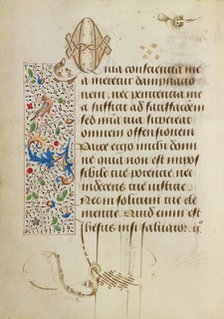 Qua consciencia me
a meretur dampnacio
nem, nec penitencia me
a sufficit ad satisfactio
sed mia tua superat
omnem offensionem
Parce ergo michi domi
ne quia non est impos
sibile tue potencie, nec
indecens tue iusticie,
Nec insolitum tue cle
mencie, Quod enim est
ihesus nisi saluator, q